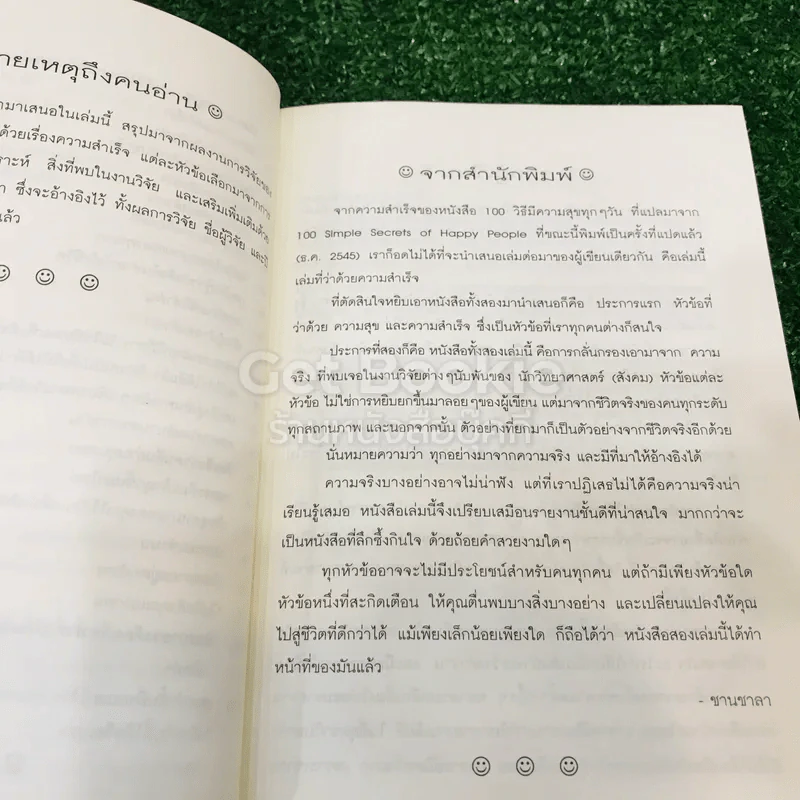 ายเหตุถึงคนอ่าน ☺
ามาเสนอในเล่มนี้ สรุปมาจากผลงานการวิจัยของ
ด้วยเรื่องความสำเร็จ แต่ละหัวข้อเลือกมาจากการ
ราะห์ สิ่งที่พบในงานวิจัย และเสริมเพิ่มเติมด้วย
า ซึ่งจะอ้างอิงไว้ ทั้งผลการวิจัย ชื่อผู้วิจัย และปี
แล้ว
☺ ☺ ☺
☺ จากสำนักพิมพ์ ☺
จากความสำเร็จของหนังสือ 100 วิธีมีความสุขทุกๆวัน ที่แปลมาจาก
100 Simple Secrets of Happy People ที่ขณะนี้พิมพ์เป็นครั้งที่แปดแล้ว
(ธ.ค. 2545) เราก็อดไม่ได้ที่จะนำเสนอเล่มต่อมาของผู้เขียนเดียวกัน คือเล่มนี้
เล่มที่ว่าด้วยความสำเร็จ
ที่ตัดสินใจหยิบเอาหนังสือทั้งสองมานำเสนอก็คือ ประการแรก หัวข้อที่
ว่าด้วย ความสุข และความสำเร็จ ซึ่งเป็นหัวข้อที่เราทุกคนต่างก็สนใจ
ประการที่สองก็คือ หนังสือทั้งสองเล่มนี้ คือการกลั่นกรองเอามาจาก ความ
จริง ที่พบเจอในงานวิจัยต่างๆนับพันของ นักวิทยาศาสตร์ (สังคม) หัวข้อแต่ละ
หัวข้อ ไม่ใช่การหยิบยกขึ้นมาลอยๆของผู้เขียน แต่มาจากชีวิตจริงของคนทุกระดับ
ทุกสถานภาพ และนอกจากนั้น ตัวอย่างที่ยกมาก็เป็นตัวอย่างจากชีวิตจริงอีกด้วย
นั่นหมายความว่า ทุกอย่างมาจากความจริง และมีที่มาให้อ้างอิงได้
ความจริงบางอย่างอาจไม่น่าฟัง แต่ที่เราปฏิเสธไม่ได้คือความจริงน่า
เรียนรู้เสมอ หนังสือเล่มนี้จึงเปรียบเสมือนรายงานชั้นดีที่น่าสนใจ มากกว่าจะ
เป็นหนังสือที่ลึกซึ้งกินใจ ด้วยถ้อยคำสวยงามใดๆ
ทุกหัวข้ออาจจะไม่มีประโยชน์สำหรับคนทุกคน แต่ถ้ามีเพียงหัวข้อใด
หัวข้อหนึ่งที่สะกิดเตือน ให้คุณตื่นพบบางสิ่งบางอย่าง และเปลี่ยนแปลงให้คุณ
ไปสู่ชีวิตที่ดีกว่าได้ แม้เพียงเล็กน้อยเพียงใด ก็ถือได้ว่า หนังสือสองเล่มนี้ได้ทำ
หน้าที่ของมันแล้ว
- ชานชาลา
☺ ☺ ☺
Get Bookie
ร้านหนังสือบุ๊คกี้